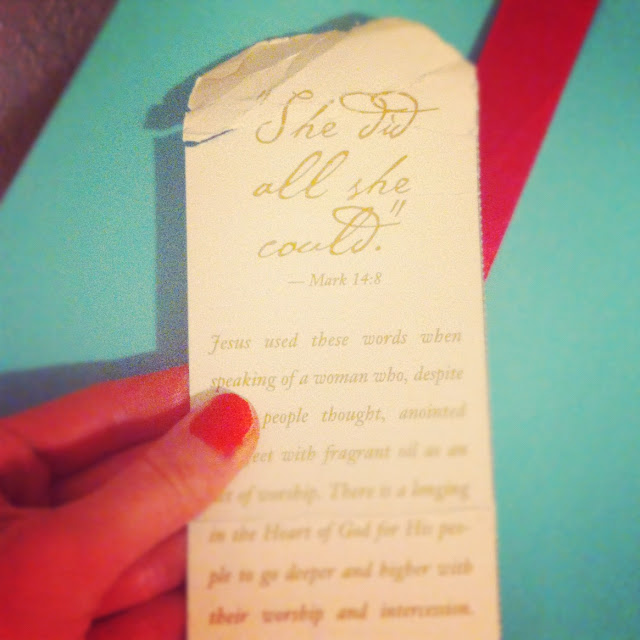 "She did
all she
could."
— Mark 14:8
Jesus used these words when
speaking of a woman who, despite
people thought, anointed
feet with fragrant oil as an
of worship. There is a longing
in the Heart of God for His peo-
ple to go deeper and higher with
their worship and intercession.